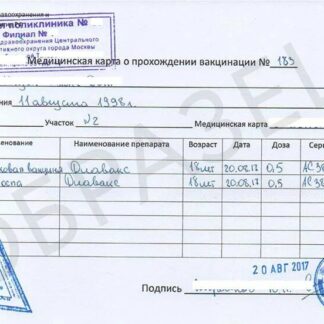 равоохранения и
я поликлиника №
Филиал №
здравоохранения Центрального
тивного округа города Москвы
Медицинская карта о прохождении вакцинации № 185
ния 11 августа 1998г.
Участок №2 Медицинская карта
менование Наименование препарата Возраст Дата Доза Сери
ковая вакцина Дιавакс 18лет 20.08.17 0,5 АС38
оспа Дιавакс 18лет 20.08.17 0,5 АС38
20 АВГ 2017
Подпись
ОБРАЗЕЦ